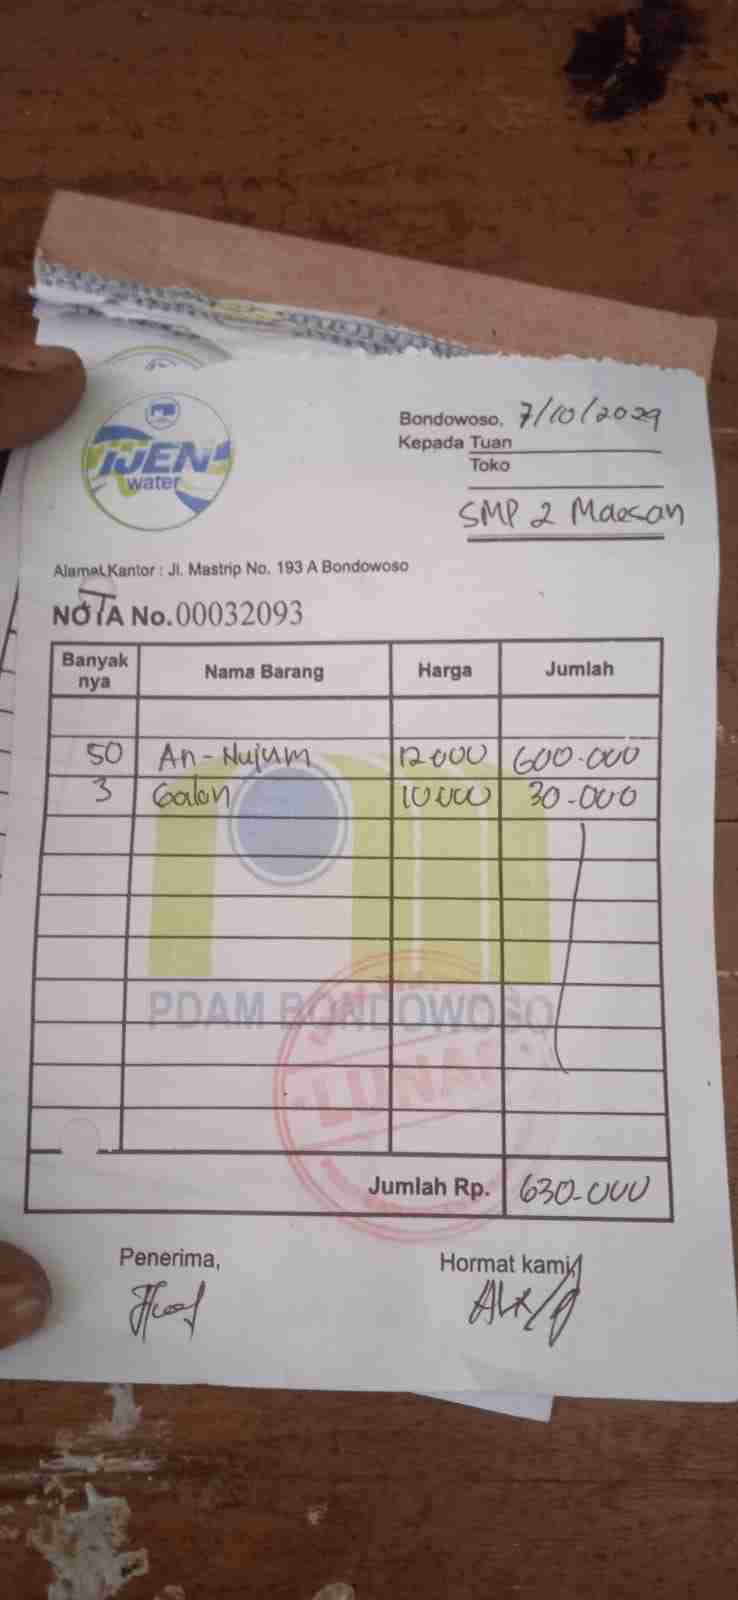 IJEN
water
Bondowoso, 7/10/2029
Kepada Tuan
Toko
SMP 2 Maesan
Alamat Kantor : Jl. Mastrip No. 193 A Bondowoso
NOTA No. 00032093
Banyak nya Nama Barang Harga Jumlah
50 An-Nujum 12000 600.000
3 Galon 10000 30.000
PDAM BONDOWOSO
LUNAS
Jumlah Rp. 630.000
Penerima, Hormat kami,